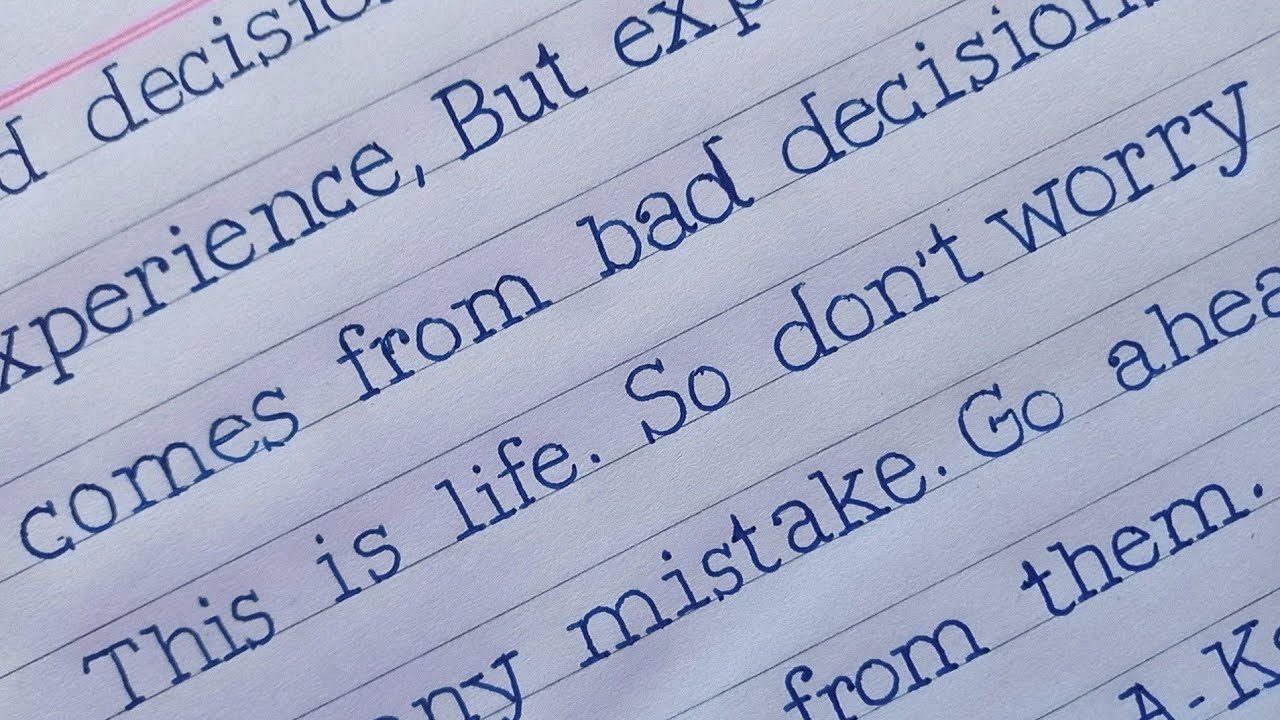 decision
experience, But
comes from bad decision
This is life. So don't worry
mistake. Go
from them.
A-K